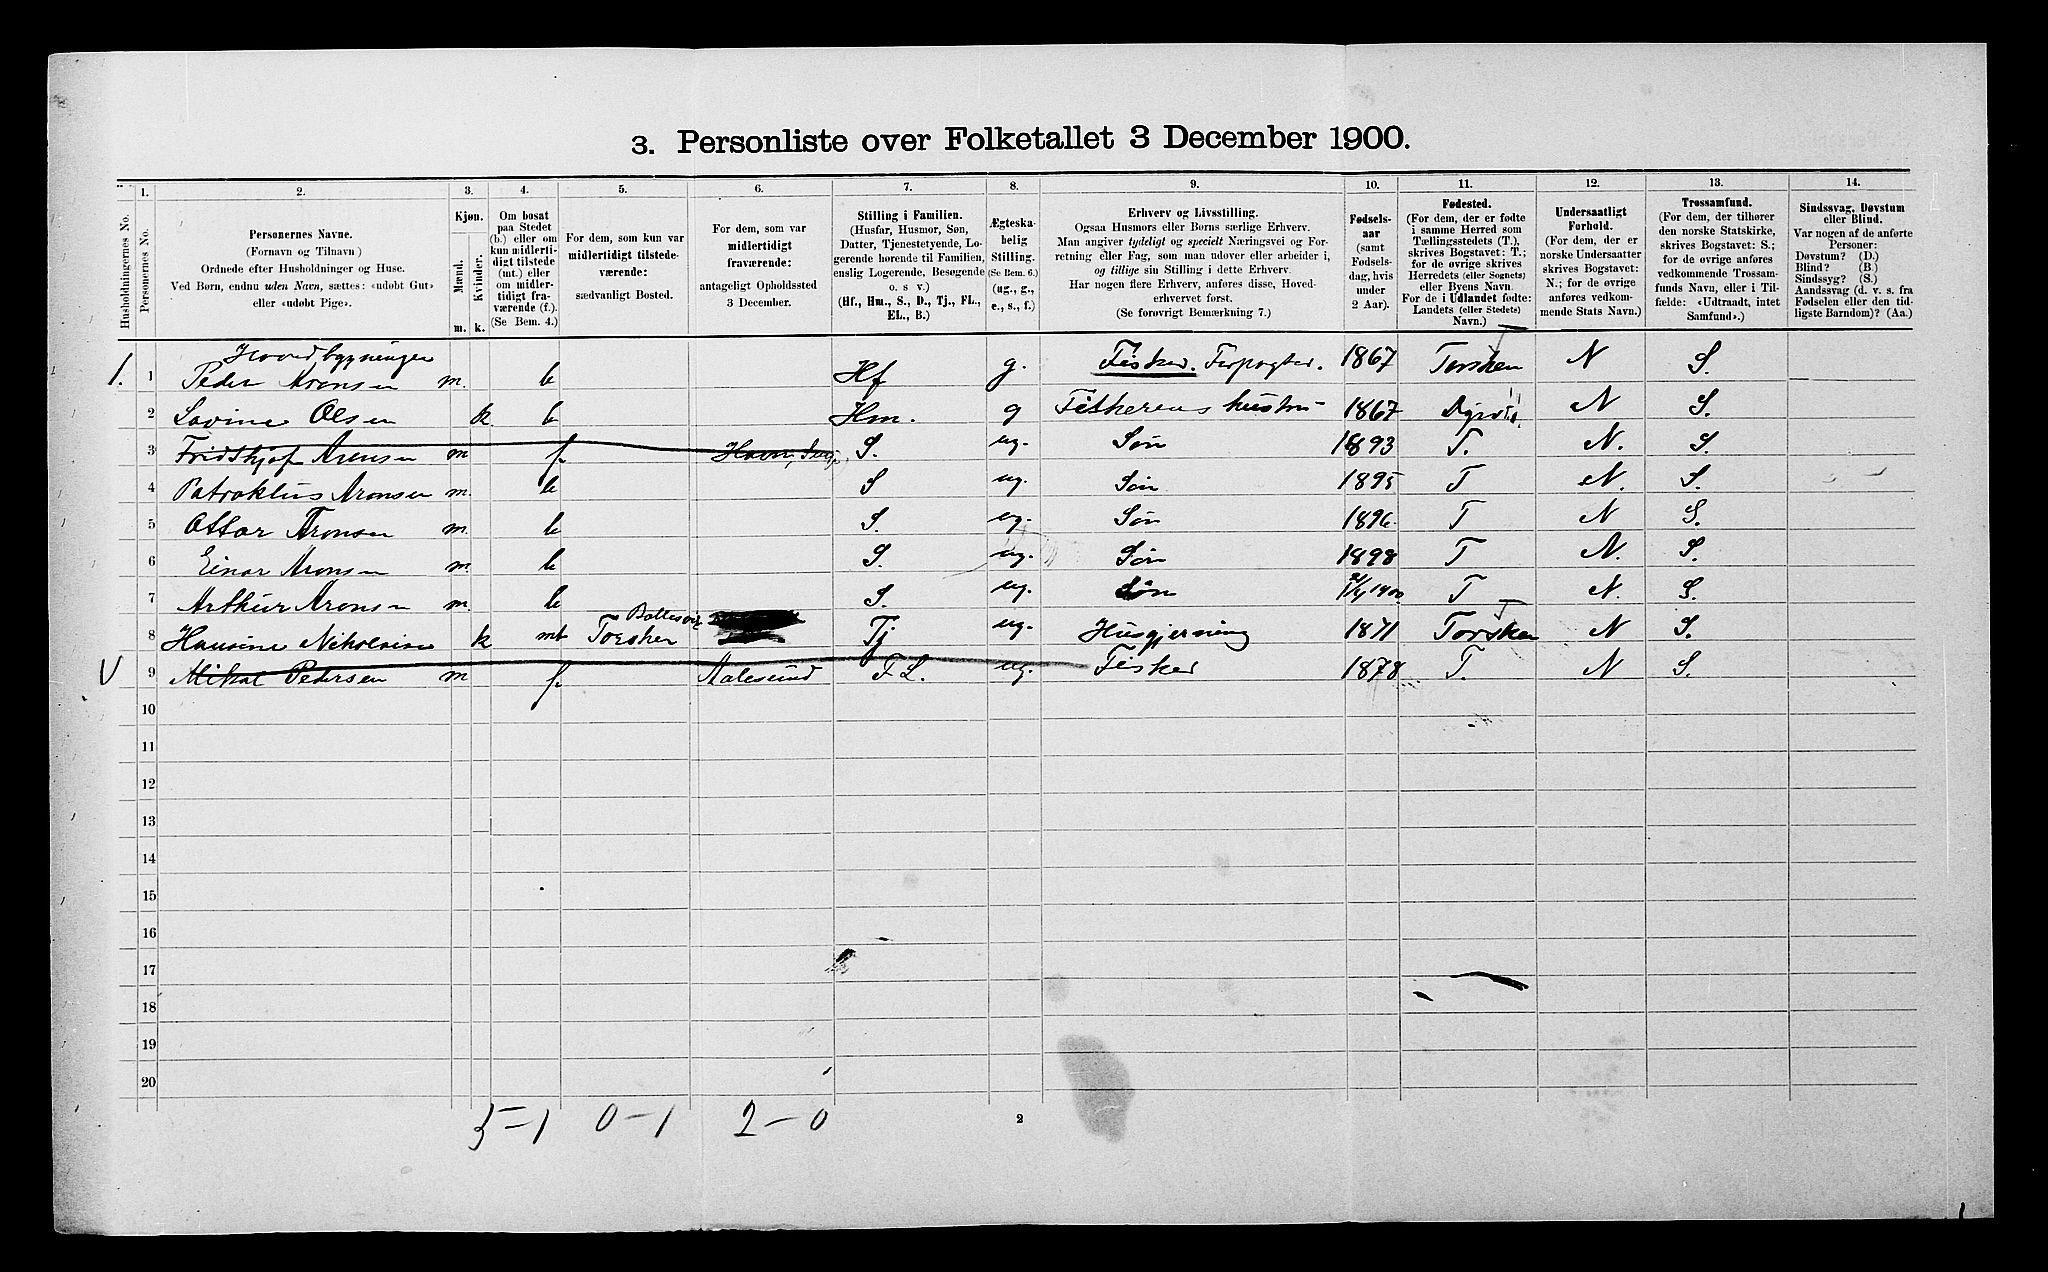 3. Personliste over Folketallet 3 December 1900.
Husholdningernes No.
1.
Personernes No.
2.
Personernes Navne.
(Fornavn og Tilnavn)
Ordnede efter Husholdninger og Huse.
Ved Børn, endnu uden Navn, sættes: «udøbt Gut»
eller «udøbt Pige».
3.
Kjøn.
Mænd.
Kvinder.
m. k.
4.
Om bosat
paa Stedet
(b.) eller om
kun midlerti-
digt tilstede
(mt.) eller
om midler-
tidigt fra-
værende (f.).
(Se Bem. 4.)
5.
For dem, som kun var
midlertidigt tilstede-
værende:
sædvanligt Bosted.
6.
For dem, som var
midlertidigt
fraværende:
antageligt Opholdssted
3 December.
7.
Stilling i Familien.
(Husfar, Husmor, Søn,
Datter, Tjenestetyende, Lo-
gerende hørende til Familien,
enslig Logerende, Besøgende
o. s v.)
(Hf., Hm., S., D., Tj., FL.,
EL., B.)
8.
Ægteska-
belig
Stilling.
(Se Bem. 6.)
(ug., g.,
e., s., f.)
9.
Erhverv og Livsstilling.
Ogsaa Husmors eller Børns særlige Erhverv.
Man angiver tydeligt og specielt Næringsvei og For-
retning eller Fag, som man udøver eller arbeider i,
og tillige sin Stilling i dette Erhverv.
Har nogen flere Erhverv, anføres disse, Hoved-
erhvervet først.
(Se forøvrigt Bemærkning 7.)
10.
Fødsels-
aar
(samt
Fødsels-
dag, hvis
under
2 Aar).
11.
Fødested.
(For dem, der er fødte
i samme Herred som
Tællingsstedets (T.),
skrives Bogstavet: T.;
for de øvrige skrives
Herredets (eller Sognets)
eller Byens Navn.
For de i Udlandet fødte:
Landets (eller Stedets)
Navn.)
12.
Undersaatligt
Forhold.
(For de norske Undersaatter
skrives Bogstavet:
N.; for de øvrige
anføres vedkom-
mende Stats Navn.)
13.
Trossamfund.
(For dem, der tilhører
den norske Statskirke,
skrives Bogstavet: S.;
for de øvrige anføres
vedkommende Trossam-
funds Navn, eller i Til-
fælde: «Udtraadt, intet
Samfund».)
14.
Sindssvag, Døvstum
eller Blind.
Var nogen af de anførte
Personer:
Døvstum? (D.)
Blind? (B.)
Sindssyg? (S.)
Aandssvag (d. v. s. fra
Fødselen eller den tid-
ligste Barndom)? (Aa.)
Hovedbygningen
1. 1 Peder Aronsen m. b Hf g. Fisker. Forpagter. 1867 Torsken T N S.
2 Lovine Olsen k b Hm. g Fiskerens hustru 1867 N S.
3 Fridthjof Aronsen m f Havn, S. ug. Søn 1893 T. N. S.
4 Patroklus Aronsen m. b S ug. Søn 1895 T N. S.
5 Ottar Aronsen m. b S. ug. Søn 1896. T N S.
6 Einar Aronsen m. b S. ug. Søn 1898 T N. S.
7 Arthur Aronsen m. b S. ug. Søn 1900 T N. S.
8 Hansine Nikolaisen k mt Torsken Tj ug. Husgjerning 1871 Torsken T N S.
V 9 Mikal Pedersen m f Aalesund F L. ug. Fisker 1878 T. N S.
10
11
12
13
14
15
16
17
18
19
20
5-1 0-1 2-0
2